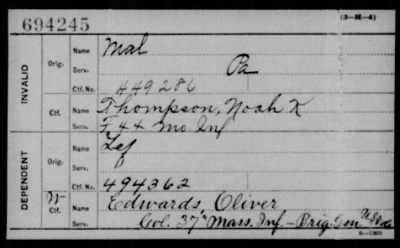 694245
(3-H-4)
INVALID
Orig.
Name
Mal
Serv.
Pa
Ctf. No.
449286
Ctf.
Name
Thompson, Noah K
Serv.
F 44 Mo. Inf
DEPENDENT
Orig.
Name
Serv.
Ctf. No.
494362
W
Ctf.
Name
Edwards, Oliver
Col. 37" Mass. Inf - Brig Gen
6-1903